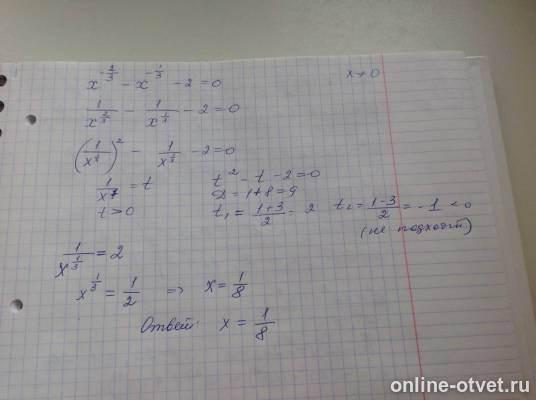 x^{-2/3} - x^{-1/3} - 2 = 0    x ≠ 0
1/x^{2/3} - 1/x^{1/3} - 2 = 0
(1/x^{1/3})² - 1/x^{1/3} - 2 = 0
1/x^{1/3} = t    t² - t - 2 = 0
t > 0    D = 1+8 = 9
t₁ = (1+3)/2 = 2    t₂ = (1-3)/2 = -1 < 0
(не подходит)
1/x^{1/3} = 2
x^{1/3} = 1/2 => x = 1/8
Ответ: x = 1/8
online-otvet.ru